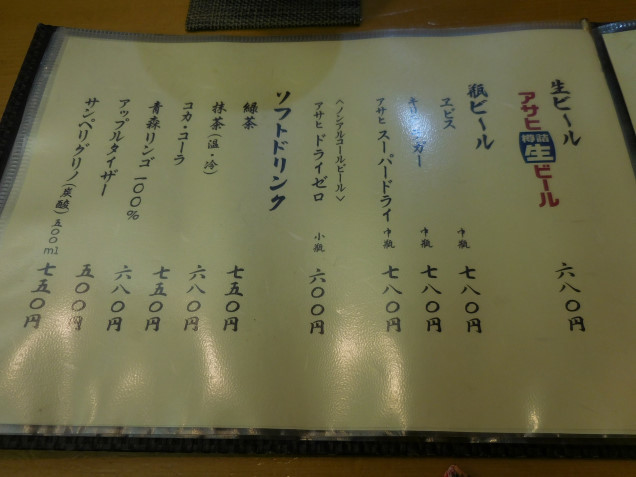 生ビール 六八〇円
アサヒ樽詰生ビール
瓶ビール
ヱビス 中瓶 七八〇円
キリンラガー 中瓶 七八〇円
アサヒ スーパードライ 中瓶 七八〇円
〈ノンアルコールビール〉
アサヒ ドライゼロ 小瓶 六〇〇円
ソフトドリンク
緑茶 七五〇円
抹茶(温・冷) 六八〇円
コカ・コーラ 七五〇円
青森リンゴ 一〇〇% 六八〇円
アップルタイザー 五〇〇円
サンペリグリノ(炭酸)五〇〇ml 七五〇円